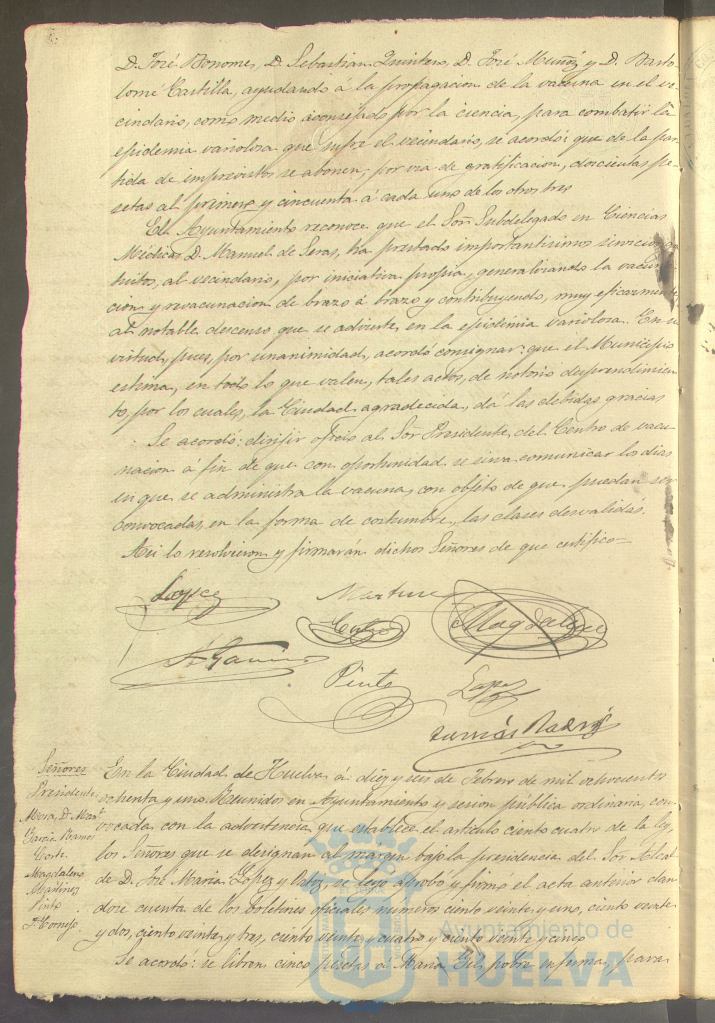 D. José Bonomes, D. Sebastian Quintero, D. José Muñoz y D. Barto-
lomé Castilla, ayudando á la propagacion de la vacuna en el ve-
cindario, como medio aconsejado por la ciencia, para combatir la
epidemia variolosa que sufre el vecindario, se acordó: que de la par-
tida de imprevistos se abonen, por via de gratificacion, doscientas pe-
setas al primero y cincuenta á cada uno de los otros tres
El Ayuntamiento reconoce que el Sor. Subdelegado en Ciencias
Médicas D. Manuel de Seras, ha prestado importantisimos servicios
tuitos, al vecindario, por iniciativa propia, generalizando la vacuna-
cion y revacunacion de brazo á brazo y contribuyendo, muy eficazmente
al notable descenso que se advierte en la epidemia variolosa. En su
virtud, pues, por unanimidad, acordó consignar: que el Municipio
estima, en todo lo que valen, tales actos, de notorio desprendimien-
to, por los cuales, la Ciudad agradecida, dá las debidas gracias
Se acordó: dirijir oficio al Sor Presidente, del Centro de vacu-
nacion á fin de que con oportunidad se sirva comunicar los dias
en que se administra la vacuna, con objeto de que puedan ser
convocadas, en la forma de costumbre, las clases desvalidas.
Asi lo resolvieron y firmarán dichos Señores de que certifico=
Lopez
Martinez
Corte
Magdaleno
Garcia
Pinto
Lopez
Tomás
Señores
Presidente
Mora, D. Man.
Garcia Ramos
Corte
Magdaleno
Martinez
Pinto
Cornejo
En la Ciudad de Huelva á diez y seis de Febrero de mil ochocientos
ochenta y uno. Reunidos en Ayuntamiento y sesion pública ordinaria, con-
vocada con la advertencia que establece el artículo ciento cuatro de la ley,
los Señores que se designan al margen bajo la presidencia del Sor Alcal-
de D. José Maria Lopez y se leyó aprobó y firmó el acta anterior dan-
dose cuenta de los boletines oficiales números ciento veinte y uno, ciento veinte
y dos, ciento veinte y tres, ciento veinte y cuatro y ciento veinte y cinco
Se acordó: se libren cinco pesetas á Maria Gil, pobre enferma, para
Ayuntamiento de
HUELVA